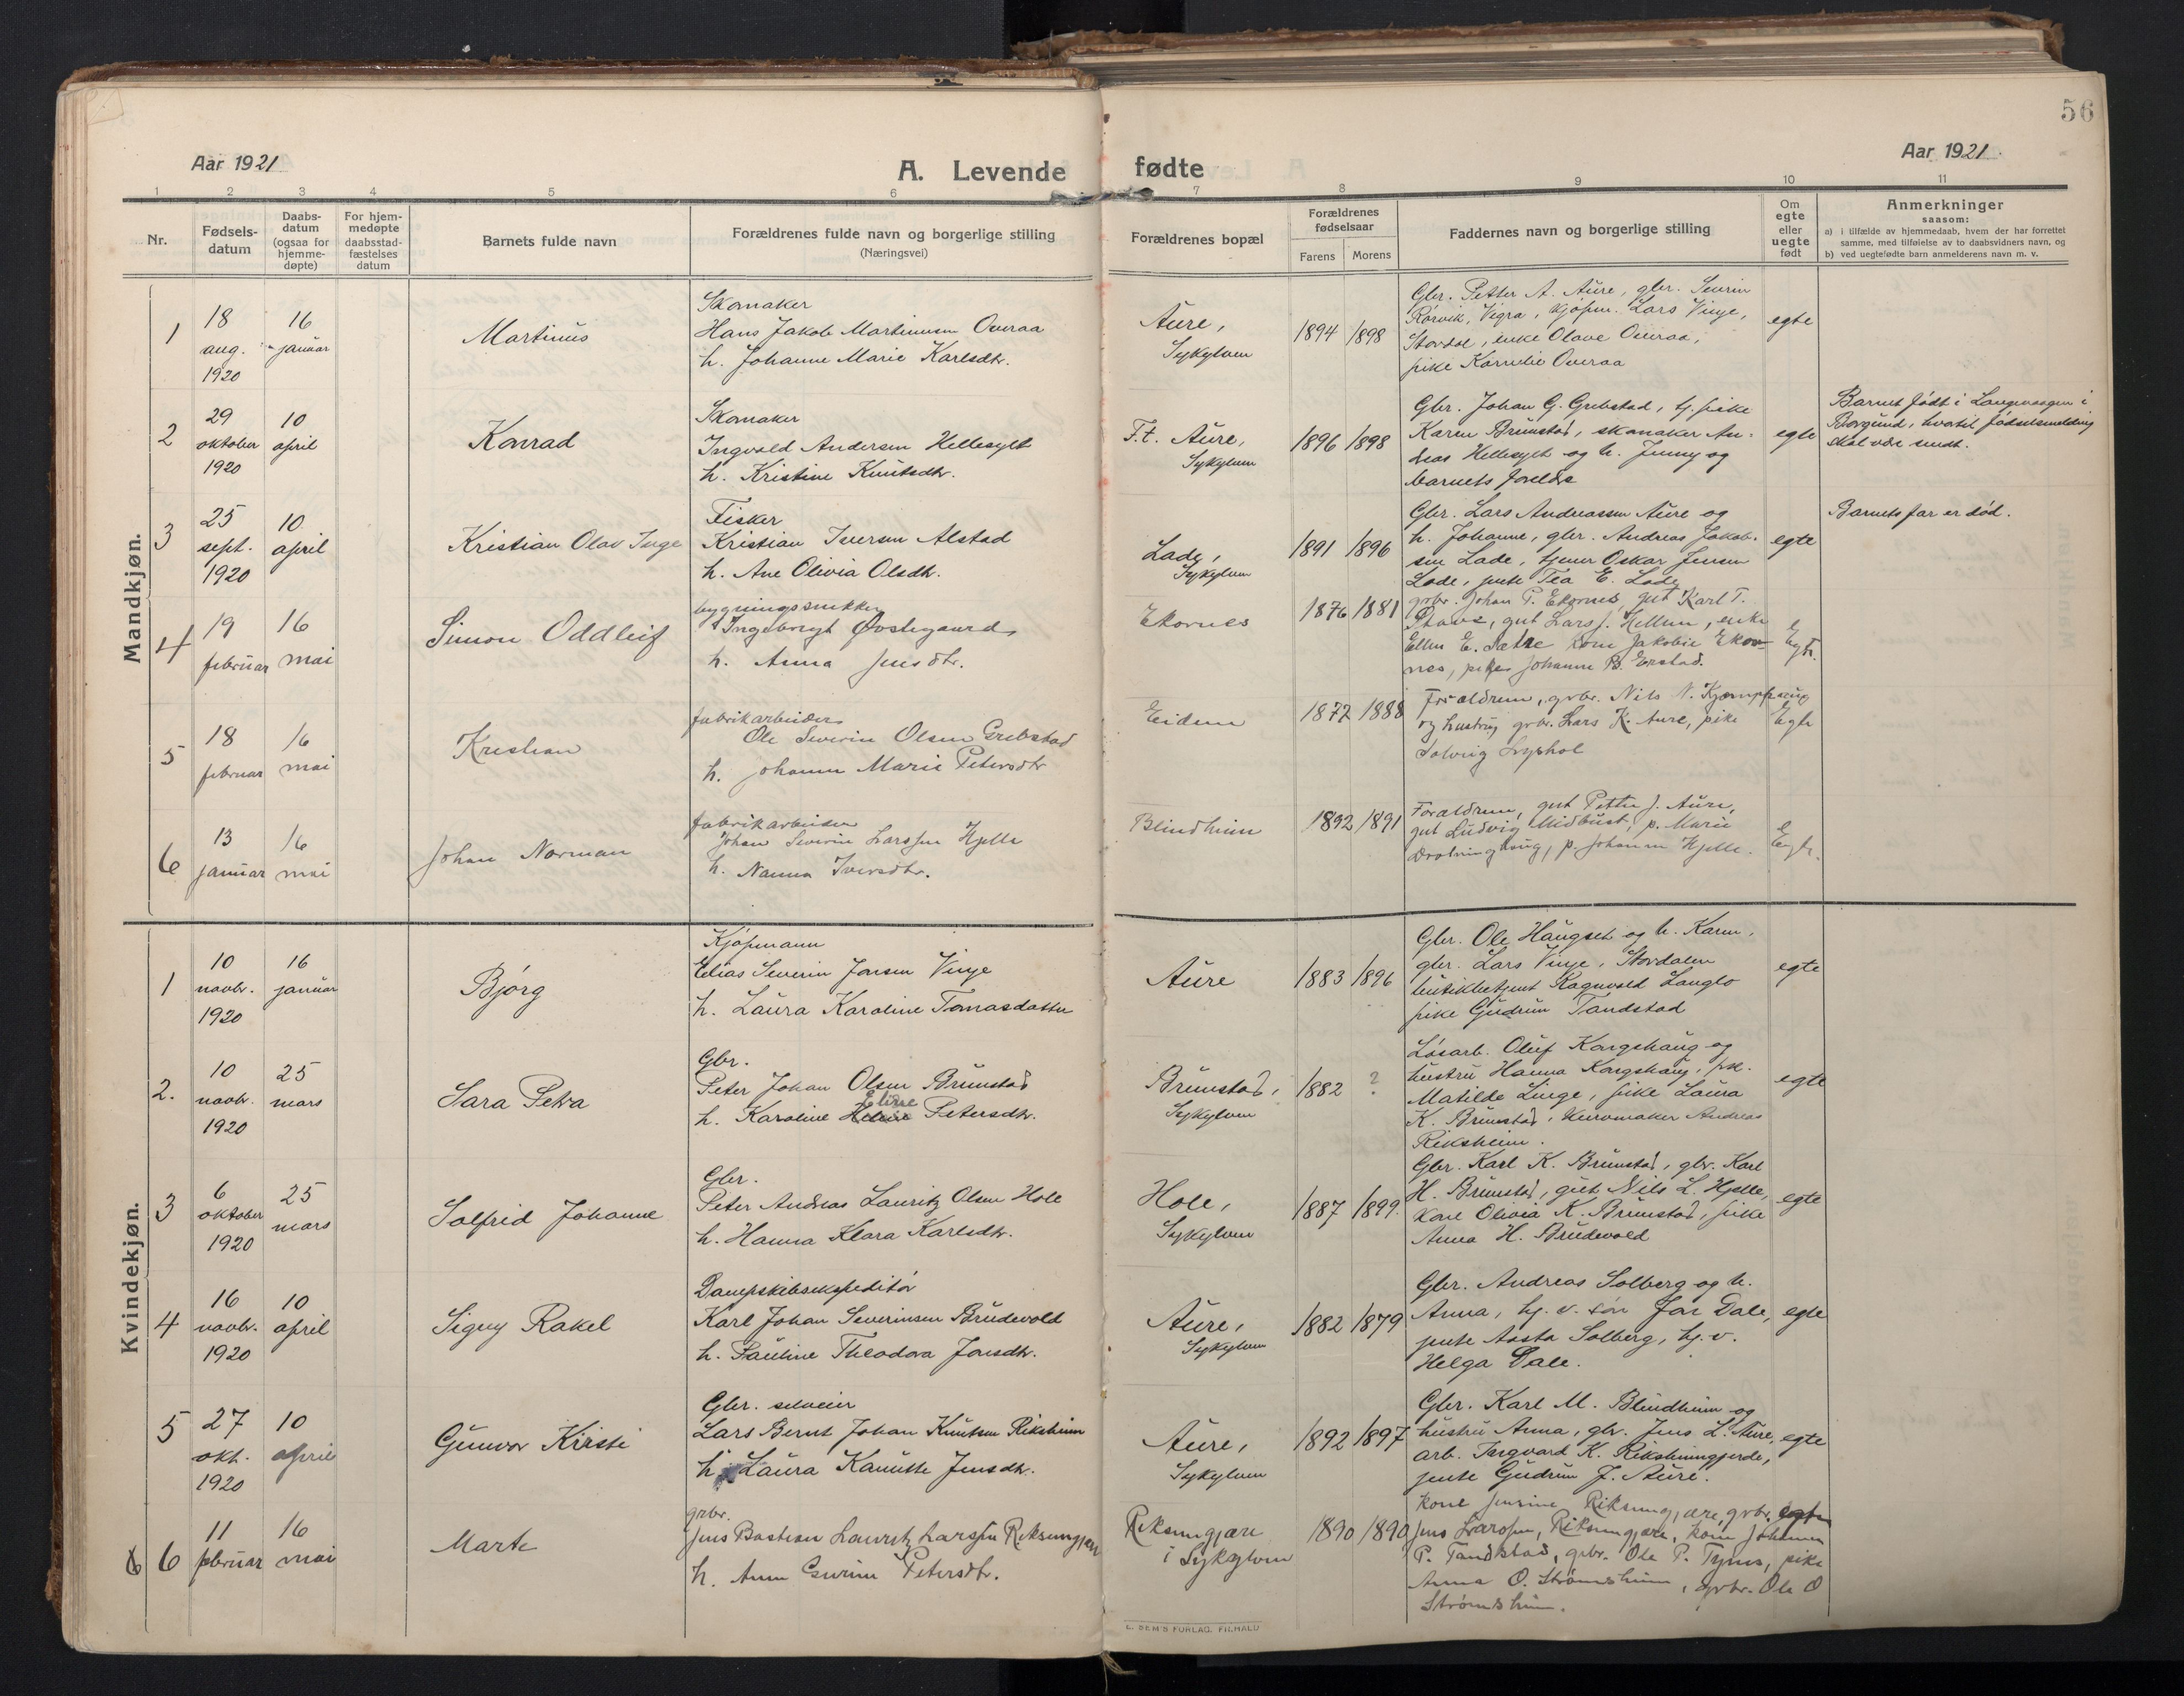 56
Aar 1921
A. Levende fødte
Aar 1921.
1 2 3 4 5 6 7 8 9 10 11
Nr.
Fødsels-
datum
Daabs-
datum
(ogsaa for
hjemme-
døpte)
For hjem-
medøpte
daabsstad-
fæstelses
datum
Barnets fulde navn
Forældrenes fulde navn og borgerlige stilling
(Næringsvei)
Forældrenes bopæl
Forældrenes
fødselsaar
Farens Morens
Faddernes navn og borgerlige stilling
Om
egte
eller
uegte
født
Anmerkninger
saasom:
a) i tilfælde av hjemmedaab, hvem der har forrettet
samme, med tilføielse av to daabsvidners navn, og
b) ved uegtefødte barn anmelderens navn m. v.
Mandkjøn.
1
18
aug.
1920
16
januar
Martinus
Skomaker
Hans Jakob Martinusen Overaa
h. Johanne Marie Karlsdtr.
Aure,
Sykylven
1894 1898
Gbr. Petter A. Aure, gbr. Severin
Rørvik, Vigra, kjøpm. Lars Vinje,
Stordal, enke Olave Overaa,
pike Kornelie Overaa
egte
2
29
oktober
1920
10
april
Konrad
Skomaker
Ingvald Andersen Hellesylt
h. Kristine Knutsdtr.
F.t. Aure,
Sykylven
1896 1898
Gbr. Johan G. Grebstad, tj. pike
Karen Brunstad, skomaker An-
dreas Hellesylt og h. Jenny og
barnets foreldre
egte
Barnet født i Langevaagen i
Borgund, hvortil fødselsmelding
skal være sendt.
3
25
sept.
1920
10
april
Kristian Olav Inge
Fisker
Kristian Iversen Alstad
h. Ane Olivia Olsdtr.
Lade,
Sykylven
1891 1896
Gbr. Lars Andreassen Aure og
h. Johanne, gbr. Andreas Jakob-
sen Lade, tjener Oskar Jensen
Lade, jente Tea E. Lade
egte
Barnets far er død.
4
19
februar
16
mai
Simon Oddleif
bygningssnikker
Ingebrigt Øvstegaard
h. Anna Jensdtr.
Ekornes
1876 1881
grbr. Johan P. Ekornes, gut Karl T.
gut Lars J. Hellen, enke
Ellen E. Sætre kone Jakobie Ekor-
nes, pike Johanne B. Erstad.
Egte.
5
18
februar
16
mai
Kristian
fabrikarbeider
Ole Severin Olsen Grebstad
h. Johanne Marie Petersdtr
Eidem
1872 1888
Forældrene, grbr. Nils N. Kjemphaug
og hustru grbr. Lars K. Aure, pike
Solveig Lyshol
Egte
6
13
januar
16
mai
Johan Norman
fabrikarbeider
Johan Severin Larssen Hjelle
h. Nanna Iversdtr.
Blindheim
1892 1891
Forældrene, gut Petter J. Aure,
gut Ludvig Midbust, p. Marie
Drotninghaug, p. Johanne Hjelle.
Egte.
Kvindekjøn.
1
10
novbr.
1920
16
januar
Bjørg
Kjøpmann
Elias Severin Jonsen Vinje
h. Laura Karoline Tomasdatter
Aure
1883 1896
Gbr. Ole Haugset og h. Karen,
gbr. Lars Vinje, Stordalen
butikbetjent Ragnvald Langlo
pike Gudrun Tandstad
egte
2.
10
novbr.
1920
25
mars
Sara Petra
Gbr.
Peter Johan Olsen Brunstad
Eline
h. Karoline Petersdtr.
Brunstad,
Sykylven
1882 ?
Løsarb. Oluf Kongshaug og
hustru Hanna Kongshaug, pk.
Matilde Linge, pike Laura
K. Brunstad, kurvmaker Andreas
Riksheim.
egte
3
6
oktober
1920
25
mars
Solfrid Johanne
Gbr.
Peter Andreas Lauritz Olsen Hole
h. Hanna Klara Karlsdtr.
Hole,
Sykylven
1887 1899.
Gbr. Karl K. Brunstad, gbr. Karl
H. Brunstad, gut Nils L. Hjelle,
kone Olivia K. Brunstad, pike
Anna H. Brudevold
egte
4
16
novbr.
1920
10
april
Signy Rakel
Dampskibsekspeditør
Karl Johan Severinsen Brudevold
h. Pauline Theodora Jonsdtr.
Aure,
Sykylven
1882 1879
Gbr. Andreas Solberg og h.
Anna, hj. v. søn Jon Dale,
jente Aasta Solberg, hj. v.
Helga Dale.
egte
5
27
okt.
1920
10
april
Gunvor Kirsti
Gbr. selveier
Lars Bernt Johan Knutsen Riksheim
h. Laura Kanutte Jensdtr.
Aure,
Sykylven
1892 1897
Gbr. Karl M. Blindheim og
hustru Anna, gbr. Jens L. Aure,
arb. Ingvard K. Riksheimgjerde,
jente Gudrun J. Aure.
egte
6 6
11
februar
16
mai
Marte
grbr.
Jens Bastian Lauritz Larssen Riksemgjære
h. Anne Gurine Petersdtr.
Riksemgjære
i Sykylven
1890 1890
kone Jensine Riksemgjære, grbr.
Jens Larssen, Riksemgjære, kone Johanne
P. Tandstad, grbr. Ole P. Tynes, pike
Anna O. Strømsheim, grbr. Ole O
Strømsheim.
egte
E. SEM'S FORLAG, FR.HALD